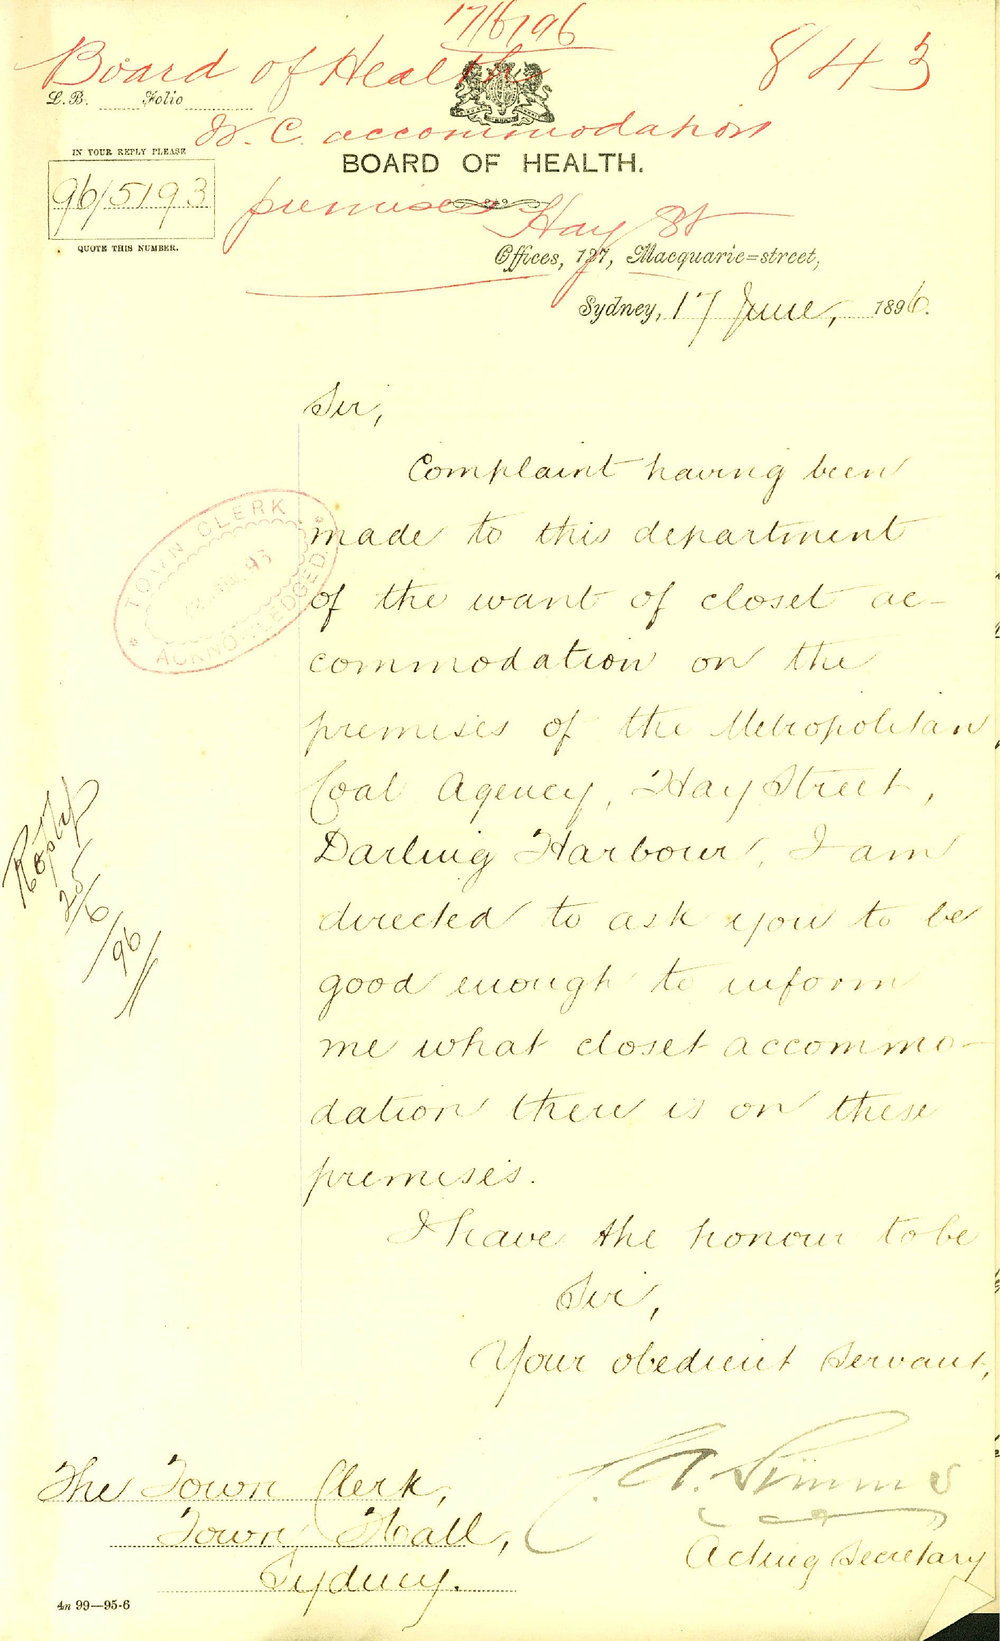 17/6/96
Board of Health 843
L.B. Folio
W. C. accommodation
IN YOUR REPLY PLEASE
BOARD OF HEALTH.
96/5193
premises Hay St
QUOTE THIS NUMBER.
Offices, 127, Macquarie=street,
Sydney, 17 June, 1896.
Sir,
Complaint having been
made to this department
of the want of closet ac-
commodation on the
premises of the Metropolitan
Coal Agency, Hay Street,
Darling Harbour, I am
directed to ask you to be
good enough to inform
me what closet accommo-
dation there is on these
premises.
I have the honour to be
Sir,
Your obedient servant,
TOWN CLERK
96
ACKNOWLEDGED
Reply
25/6/96
A. Simms
Acting Secretary
The Town Clerk,
Town Hall,
Sydney.
4m 99—95-6